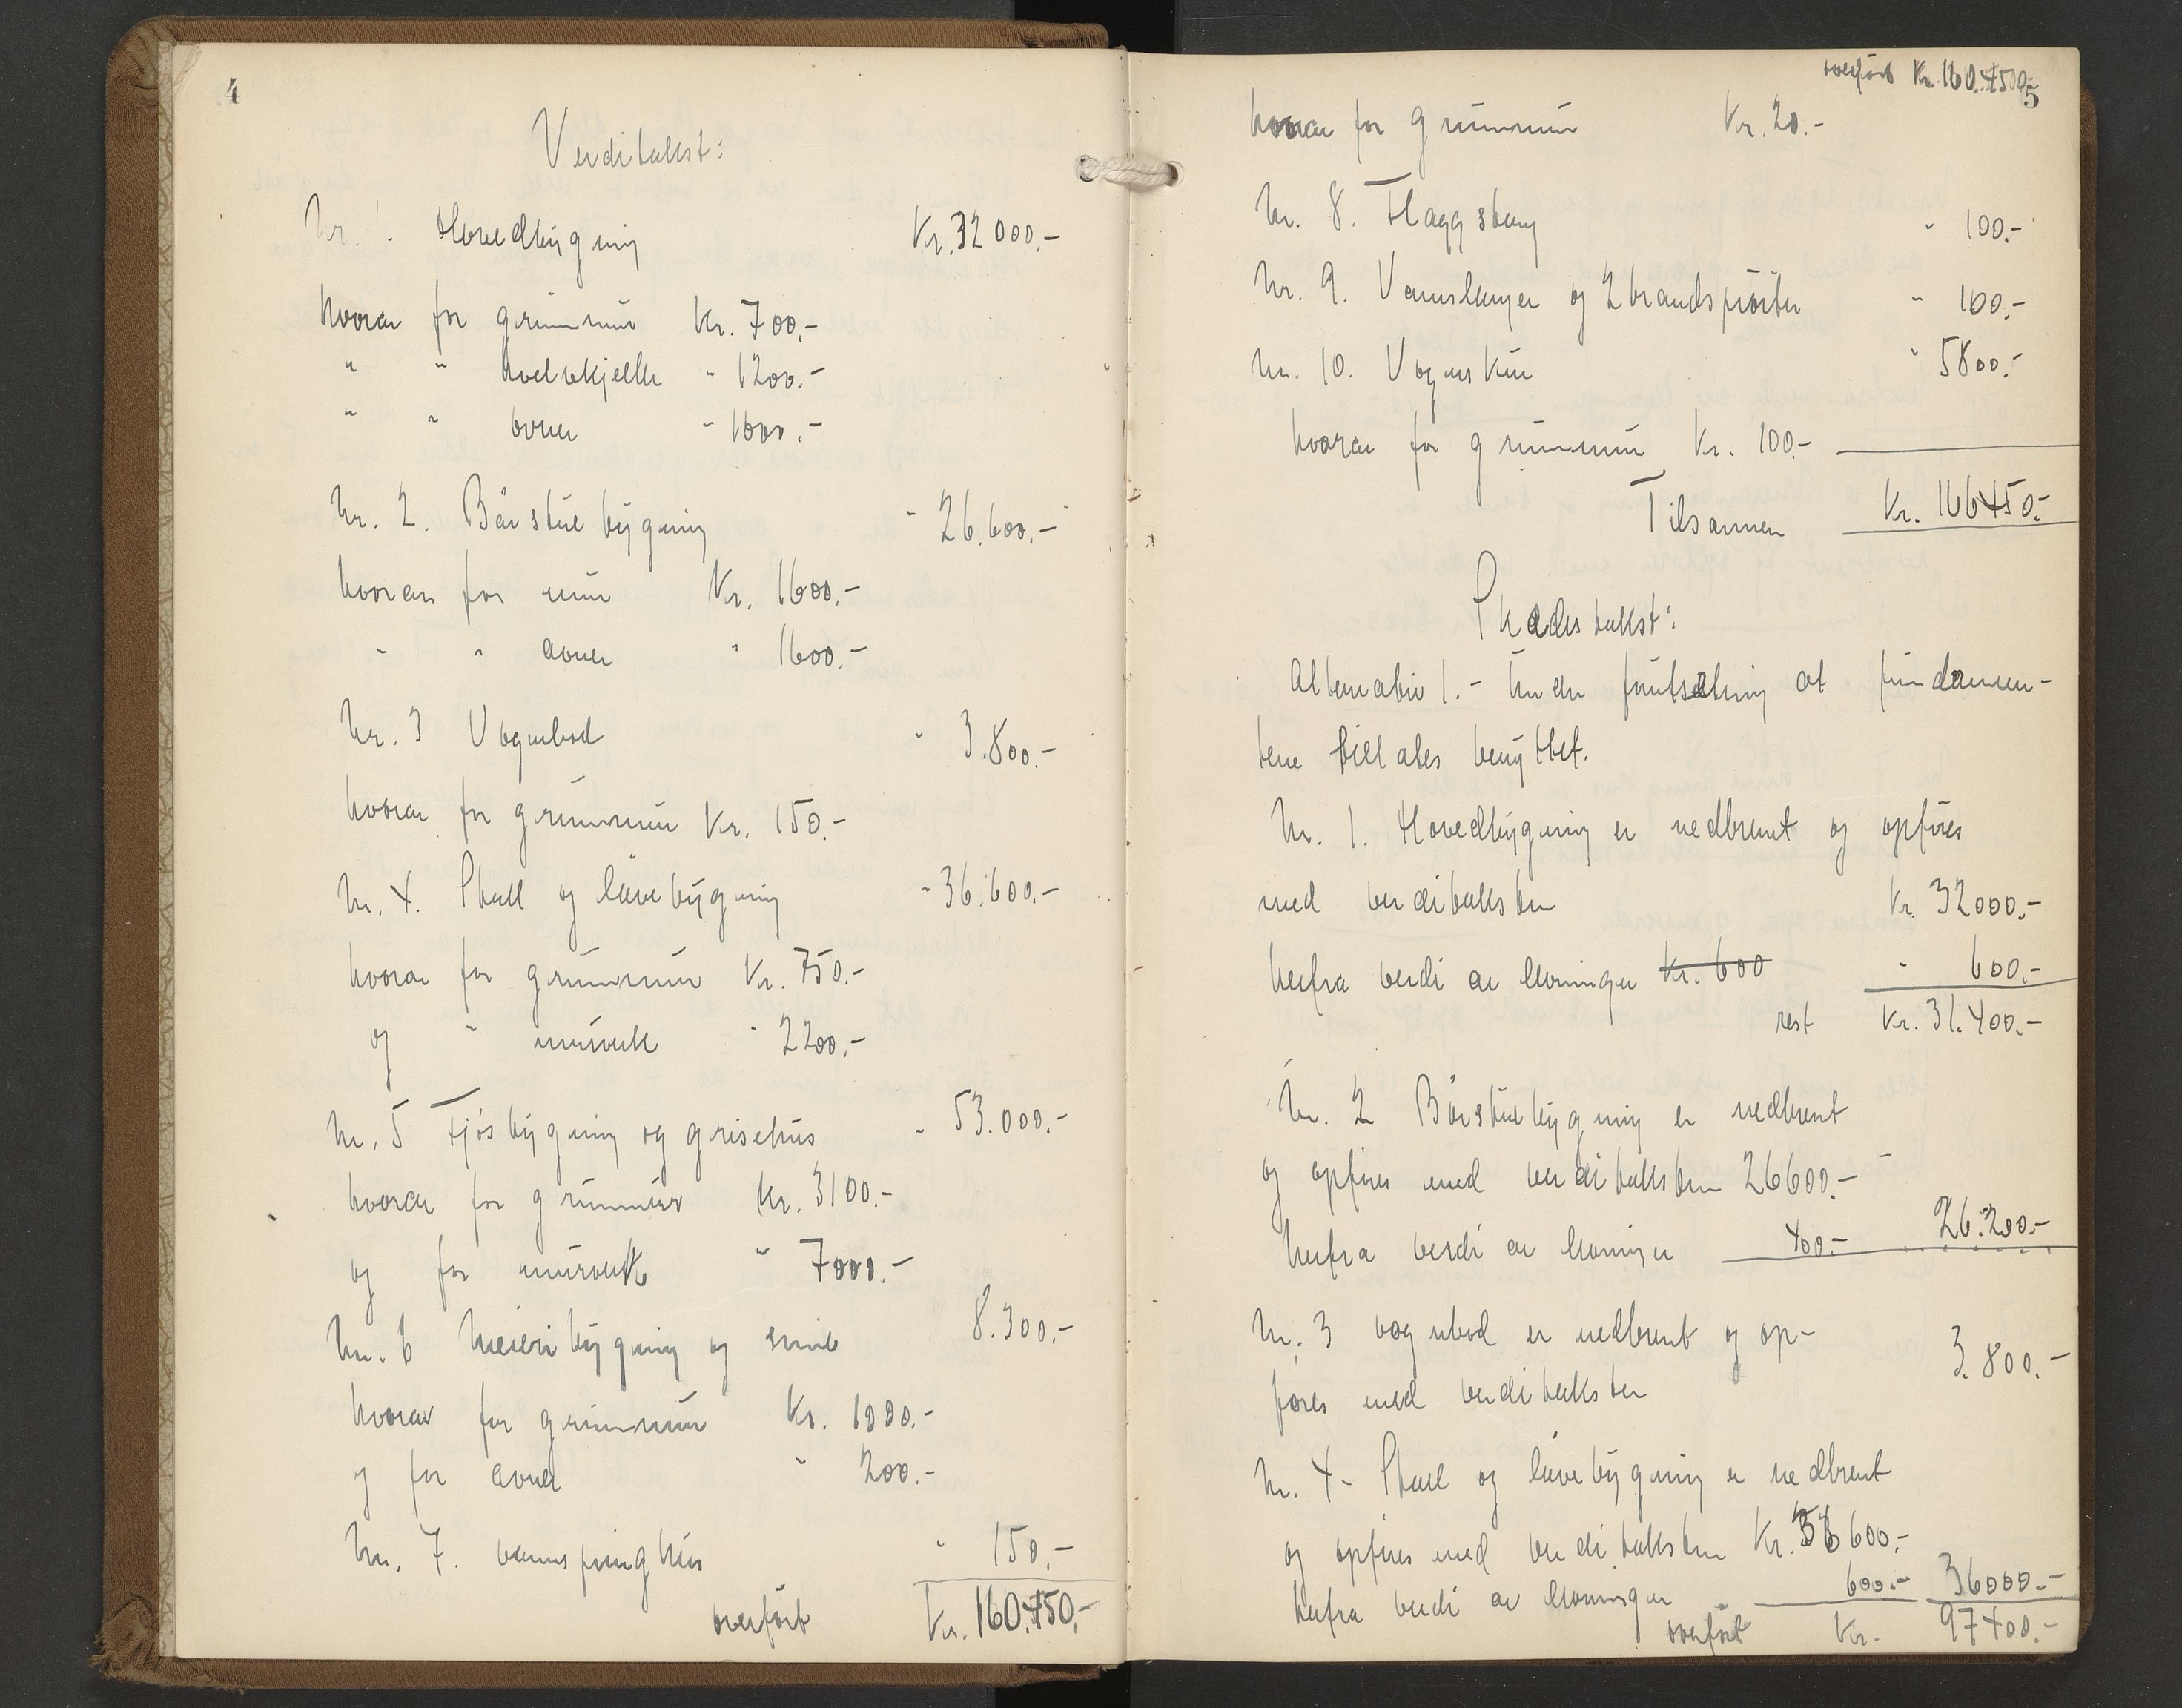 4
Verditakst:
Nr. 1. Hovedbygning Kr. 32000.-
hvorav for grunnmur Kr. 700.-
" " hvelvkjeller " 1200.-
" " ovner " 1600.-
Nr. 2. Bårstuebygning " 26.600.-
hvorav for mur Kr. 1600.-
" " ovner " 1600.-
Nr. 3 Vognbod " 3.800.-
hvorav for grunnmur Kr. 150.-
Nr. 4. Stall og låvebygning " 36.600.-
hvorav for grunnmur Kr. 750.-
og " murverk " 2200.-
Nr. 5 Fjøsbygning og grisehus " 53.000.-
hvorav for grunnmur Kr. 3100.-
og for murverk " 7000.-
Nr. 6 Meieribygning og smie 8.300.-
hvorav for grunnmur Kr. 1000.-
og for ovner " 200.-
Nr. 7. vannpumphus " 150.-
overført Kr. 160.450.-
overført Kr. 160.450.-
5
hvorav for grunnmur Kr. 20.-
Nr. 8. Flaggstang " 100.-
Nr. 9. Vannslanger og 2 brandsprøiter " 100.-
Nr. 10. Vognskur " 5800.-
hvorav for grunnmur Kr. 100.-
Tilsammen Kr. 166450.-
Skadestakst:
Alternativ 1. - Under forutsetning at fundamen-
tene tillates benyttet.
Nr. 1. Hovedbygning er nedbrent og opføres
med verditaksten Kr. 32000.-
herfra verdi av levninger Kr. 600 " 600.-
rest Kr. 31.400.-
Nr. 2 Bårstuebygning er nedbrent
og opføres med verditaksten 26600.-
herfra verdi av levninger 400.- 26.200.-
Nr. 3 vognbod er nedbrent og op-
føres med verditaksten 3.800.-
Nr. 4 - Stall og låvebygning er nedbrent
og opføres med verditaksten Kr. 36600.-
herfra verdi av levninger 600.- 36000.-
overført Kr. 97400.-